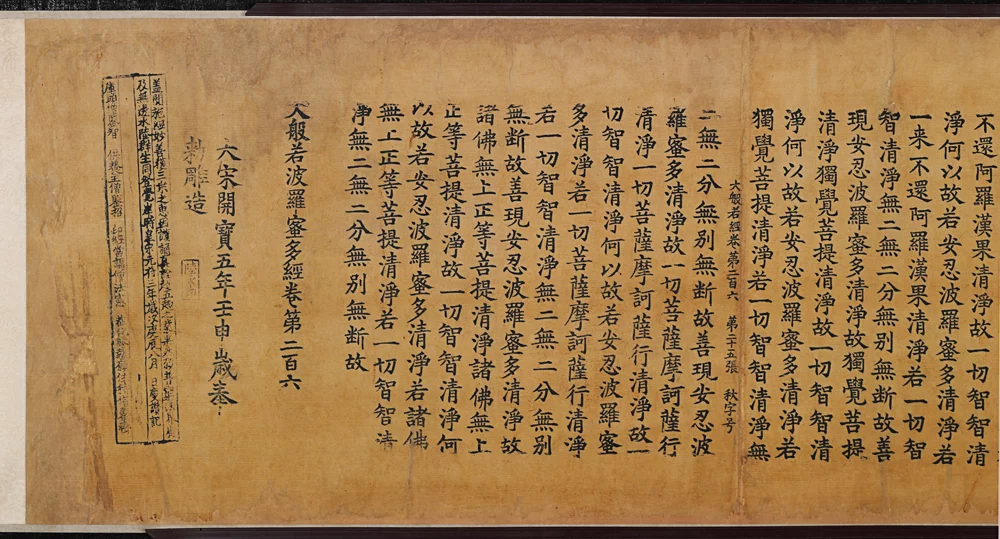 不還阿羅漢果清淨故一切智智清
淨何以故若安忍波羅蜜多清淨若
一來不還阿羅漢果清淨若一切智
智清淨無二無二分無別無斷故善
現安忍波羅蜜多清淨故獨覺菩提
清淨獨覺菩提清淨故一切智智清
淨何以故若安忍波羅蜜多清淨若
獨覺菩提清淨若一切智智清淨無
大般若經卷第二百六 第二十五張 秋字号
二無二分無別無斷故善現安忍波
羅蜜多清淨故一切菩薩摩訶薩行
清淨一切菩薩摩訶薩行清淨故一
切智智清淨何以故若安忍波羅蜜
多清淨若一切菩薩摩訶薩行清淨
若一切智智清淨無二無二分無別
無斷故善現安忍波羅蜜多清淨故
諸佛無上正等菩提清淨諸佛無上
正等菩提清淨故一切智智清淨何
以故若安忍波羅蜜多清淨若諸佛
無上正等菩提清淨若一切智智清
淨無二無二分無別無斷故
大般若波羅蜜多經卷第二百六
大宋開寶五年壬申歲奉
勅雕造
蓋聞施經妙善獲三乘之惠因讚誦真詮超五趣之業果
及無邊水陸群生同登覺岸時皇宋元符三年歲次庚辰八月 日慶讚記
庫頭僧鑒智 供養主僧鑒招 印經當講僧法憲